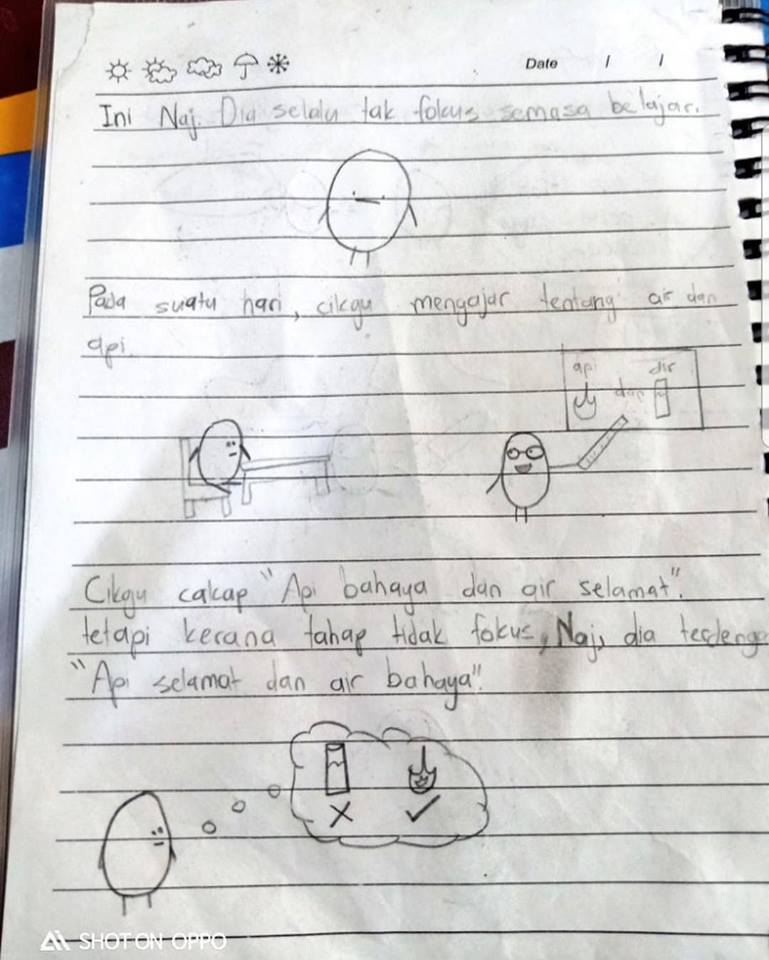 Date / /
Ini Naj. Dia selalu tak fokus semasa belajar.
Pada suatu hari, cikgu mengajar tentang air dan
api.
api dan air
Cikgu cakap "Api bahaya dan air selamat".
tetapi kerana tahap tidak fokus, Naj, dia terdenga
"Api selamat dan air bahaya".
SHOT ON OPPO